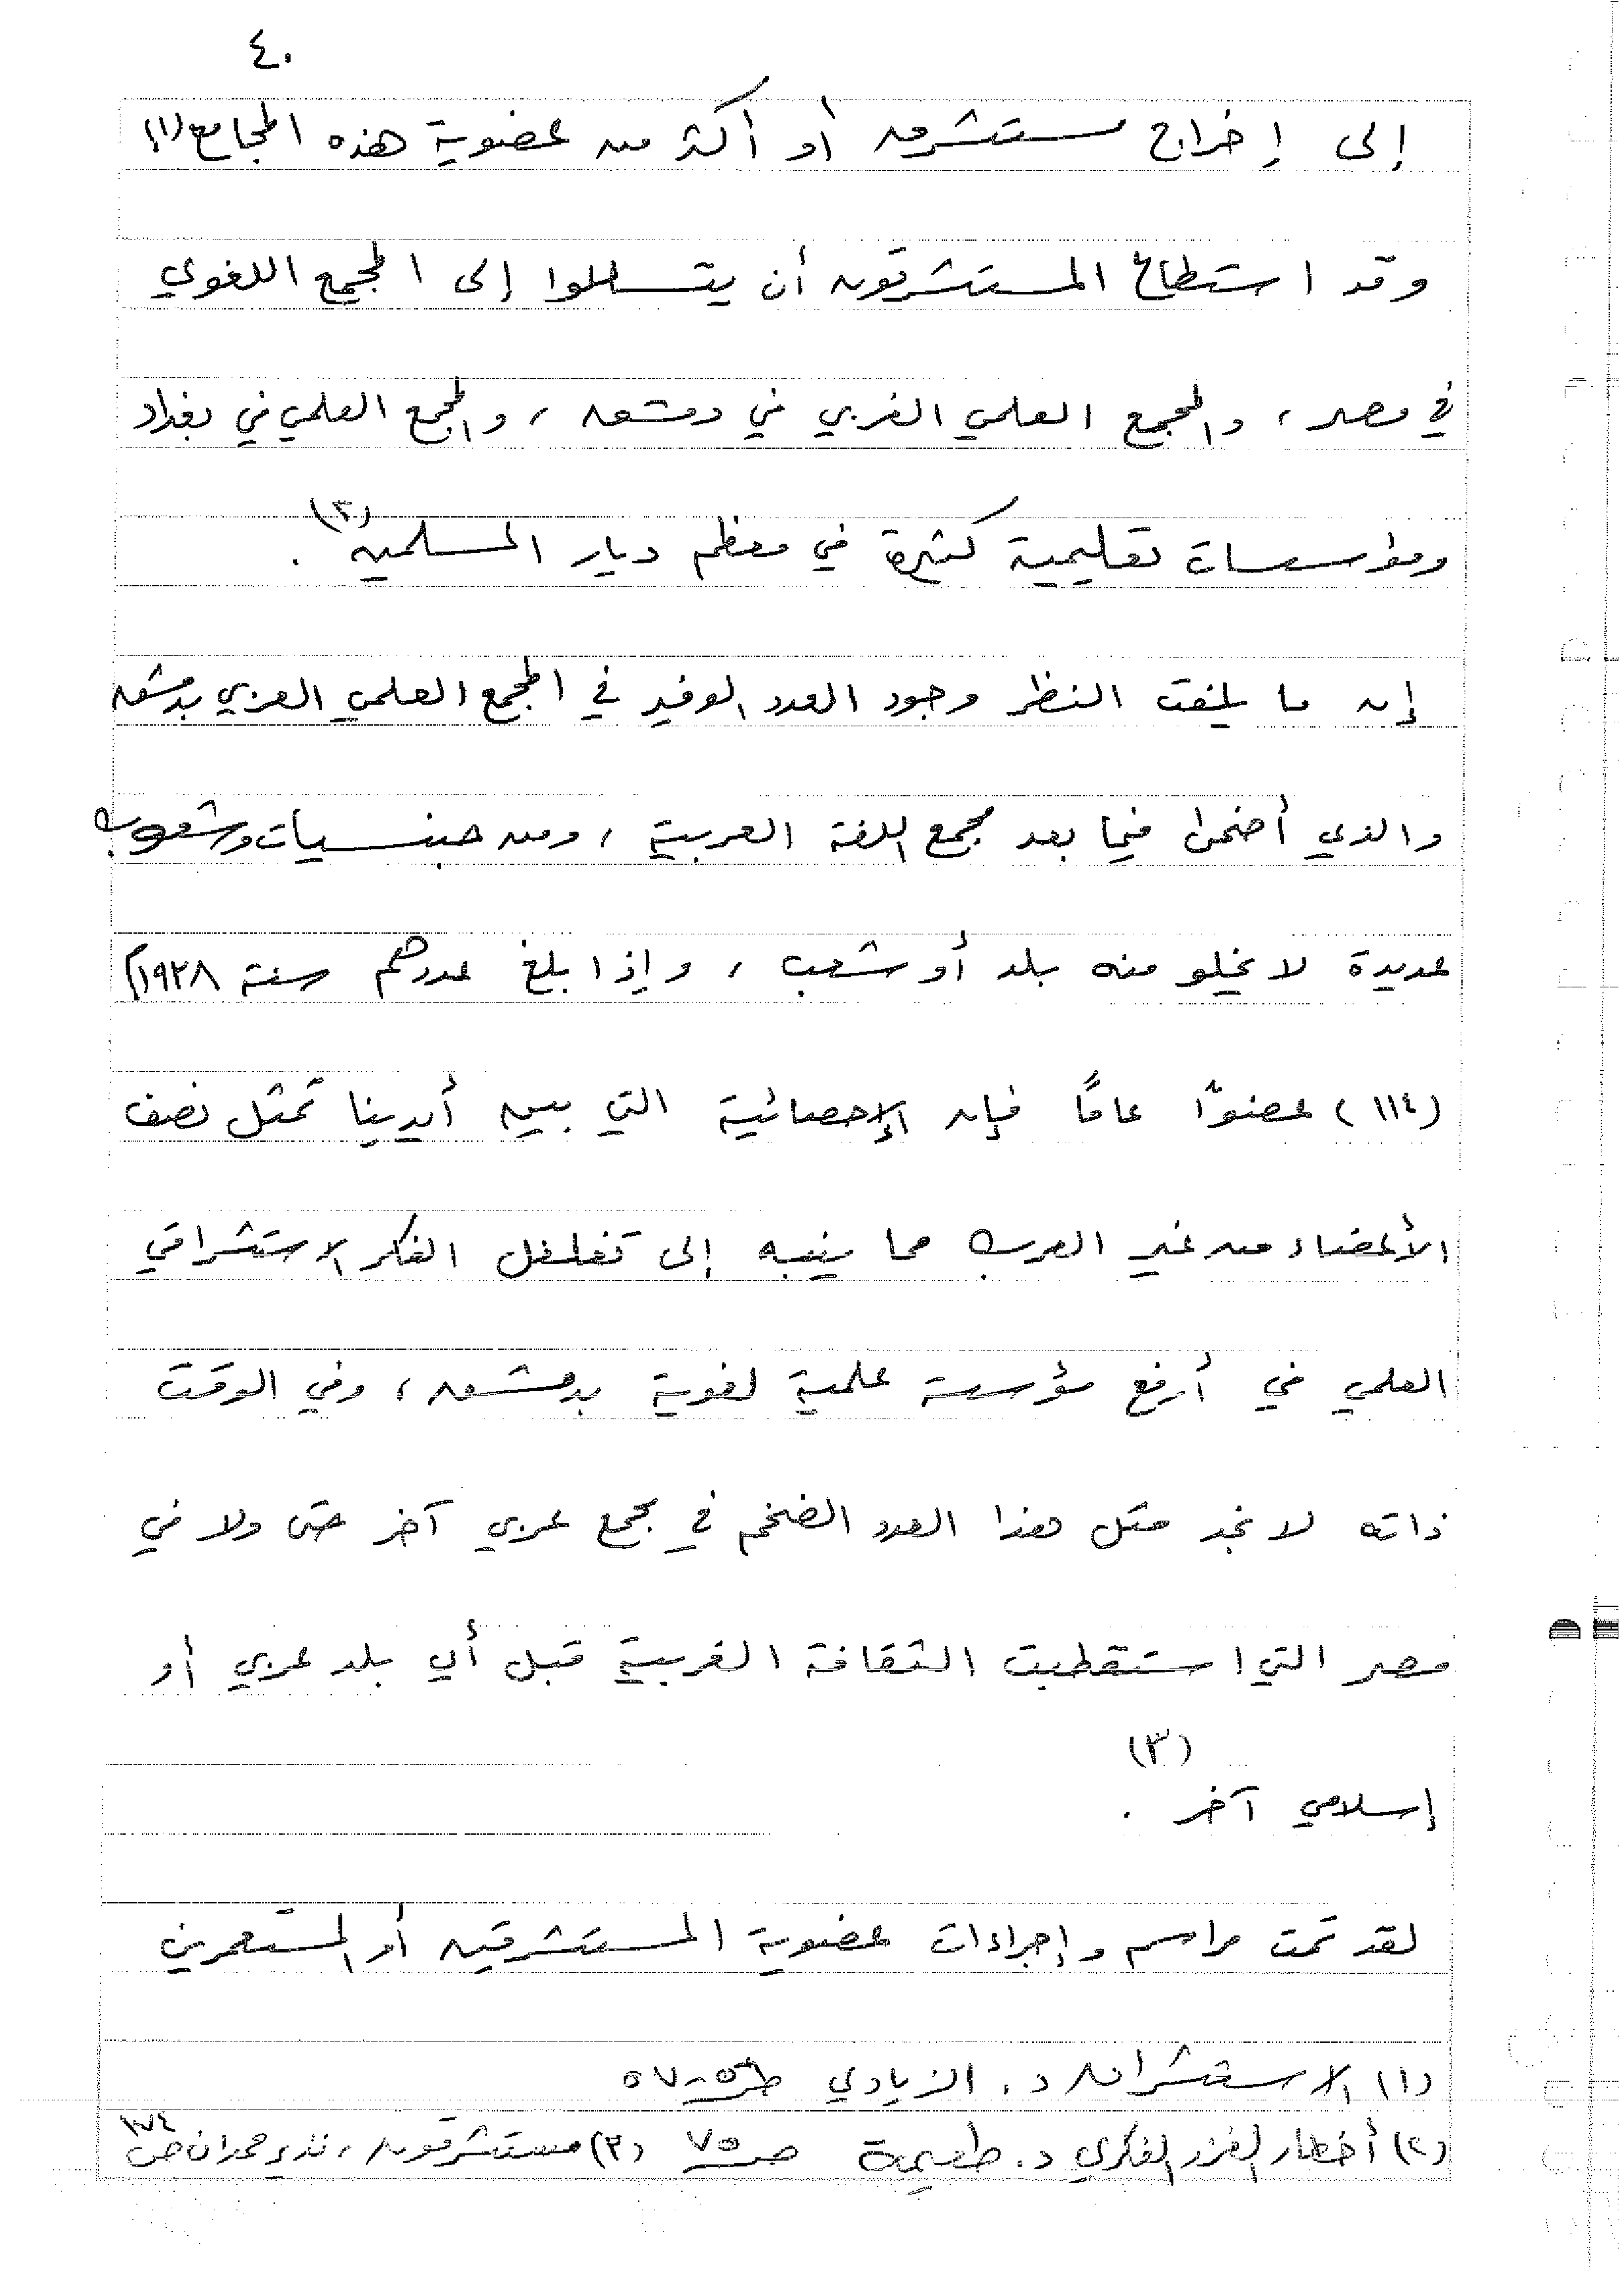 ٤٠
إلى إخراج مستشرق أو أكثر من عضوية هذه المجامع (١)؟
وقد استطاع المستشرقون أن يتسللوا إلى المجمع اللغوي
في مصر ، والمجمع العلمي الغربي في دمشق ، والمجمع العلمي في بغداد
ومؤسسات تعليمية كثيرة في معظم ديار المسلمين (٢) .
إن ما يلفت النظر وجود العدد الوفير في المجمع العلمي العربي بدمشق
والذي أضحى فيما بعد مجمع اللغة العربية ، ومن جنسيات وشعوب
عديدة لا يخلو منه بلد أو شعب ، وإذا بلغ عددهم سنة ١٩٢٨م
(١١٤) عضوًا عامًا فإن الإحصائية التي بين أيدينا تمثل نصف
الأعضاء من غير العرب مما ينبه إلى تغلغل الفكر الاستشراقي
العلمي في أرفع مؤسسة علمية لغوية بدمشق ، وفي الوقت
ذاته لا نجد مثل هذا العدد الضخم في مجمع عربي آخر حتى ولا في
مصر التي استقطبت الثقافة الغربية قبل أي بلد عربي أو
إسلامي آخر (٣) .
لقد تمت مراسم وإجراءات عضوية المستشرقين أو المستعمرين
(١) الاستشراق د. الزيادي ص ٥٦-٥٧
(٢) أخطار الغزو الفكري د. طعيمة ص ٧٥ (٣) مستشرقون ، نذير حمدان ص ١٧٤